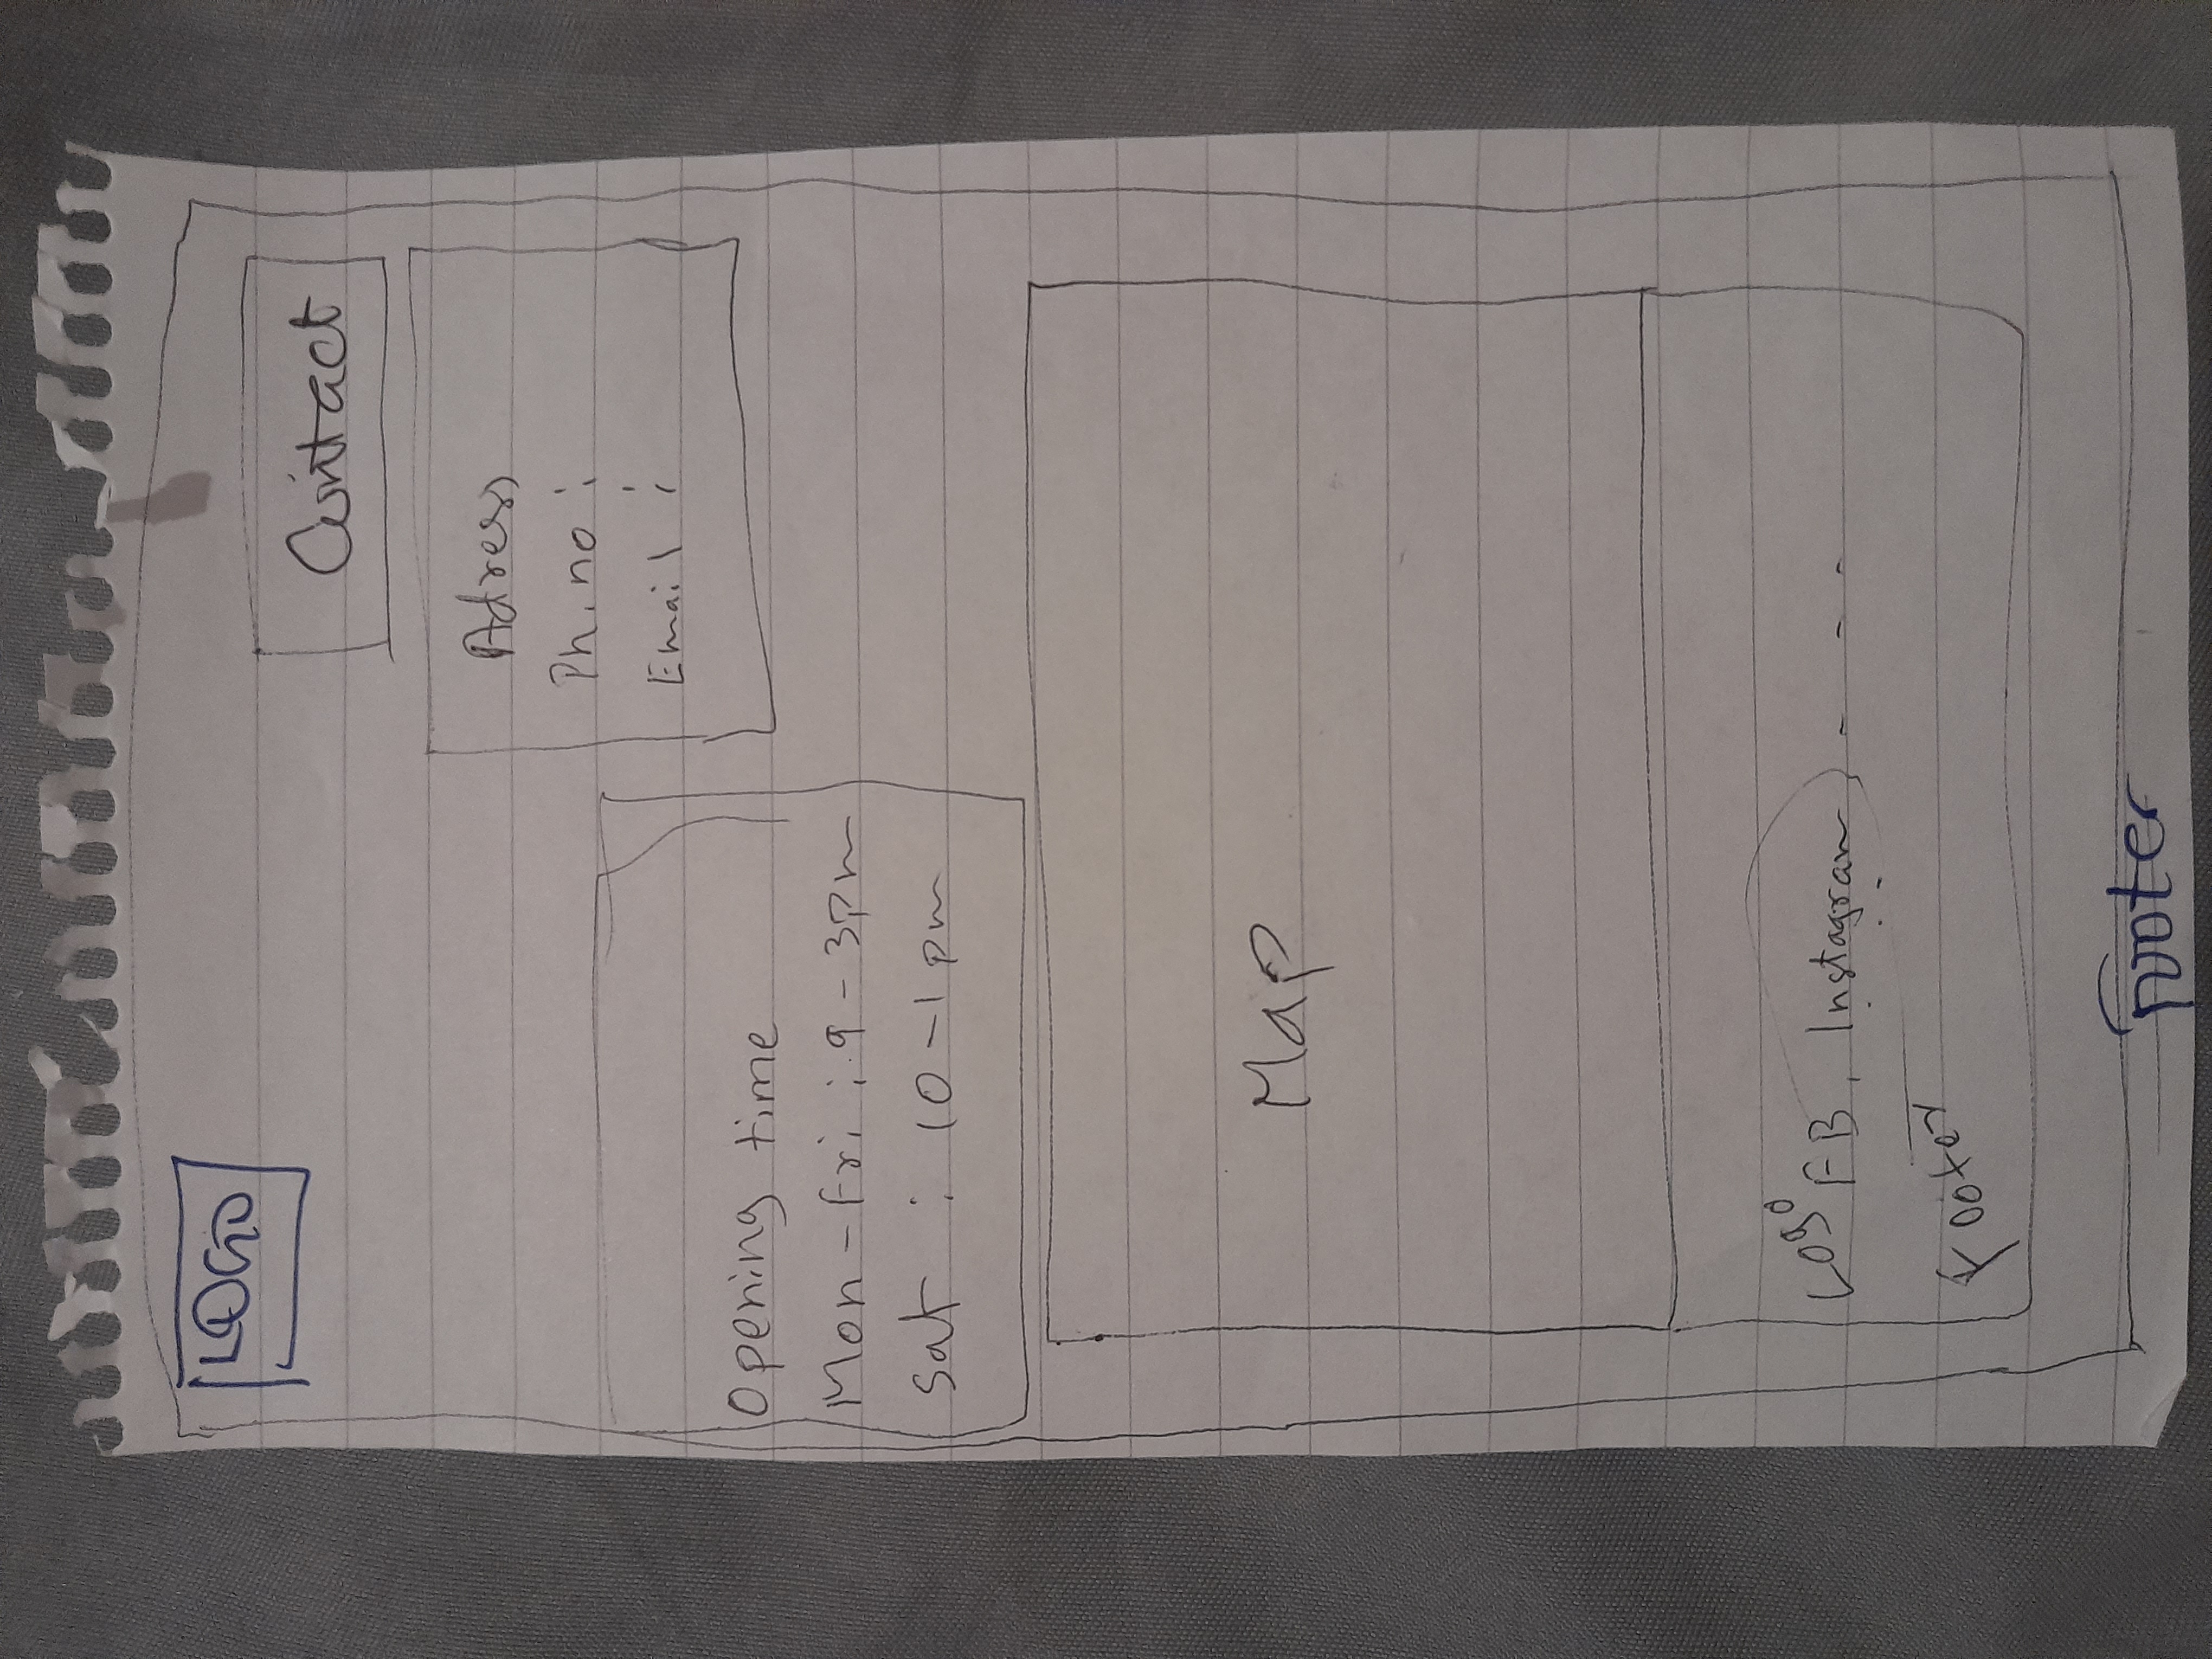 LOGO
Contact
Adress
Ph. no :
Email :
Opening time
Mon - Fri : 9 - 3pm
Sat : 10 - 1 pm
Map
Logo FB, Instagram, - - -
Footer
Footer